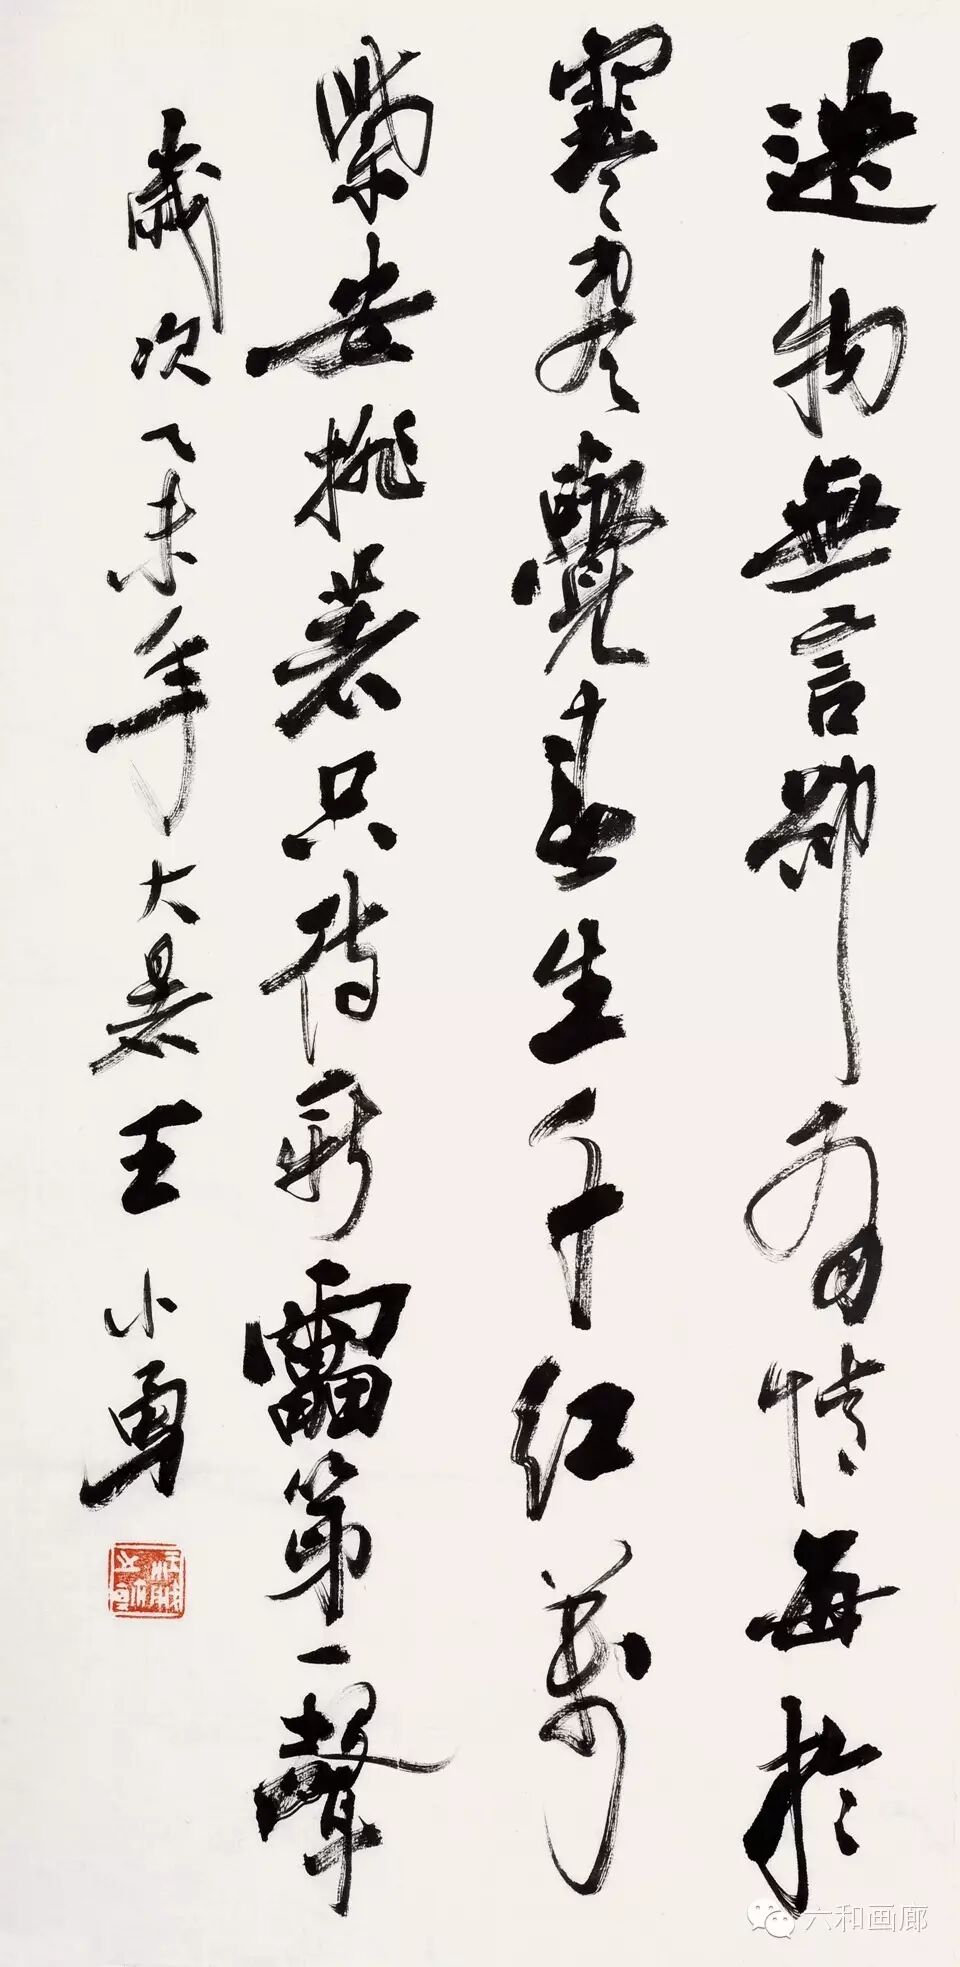 造物無言卻有情每於
寒盡覺春生千红萬
紫安排著只待新靁第一聲
歲次乙未年大暑王小勇
六和画廊